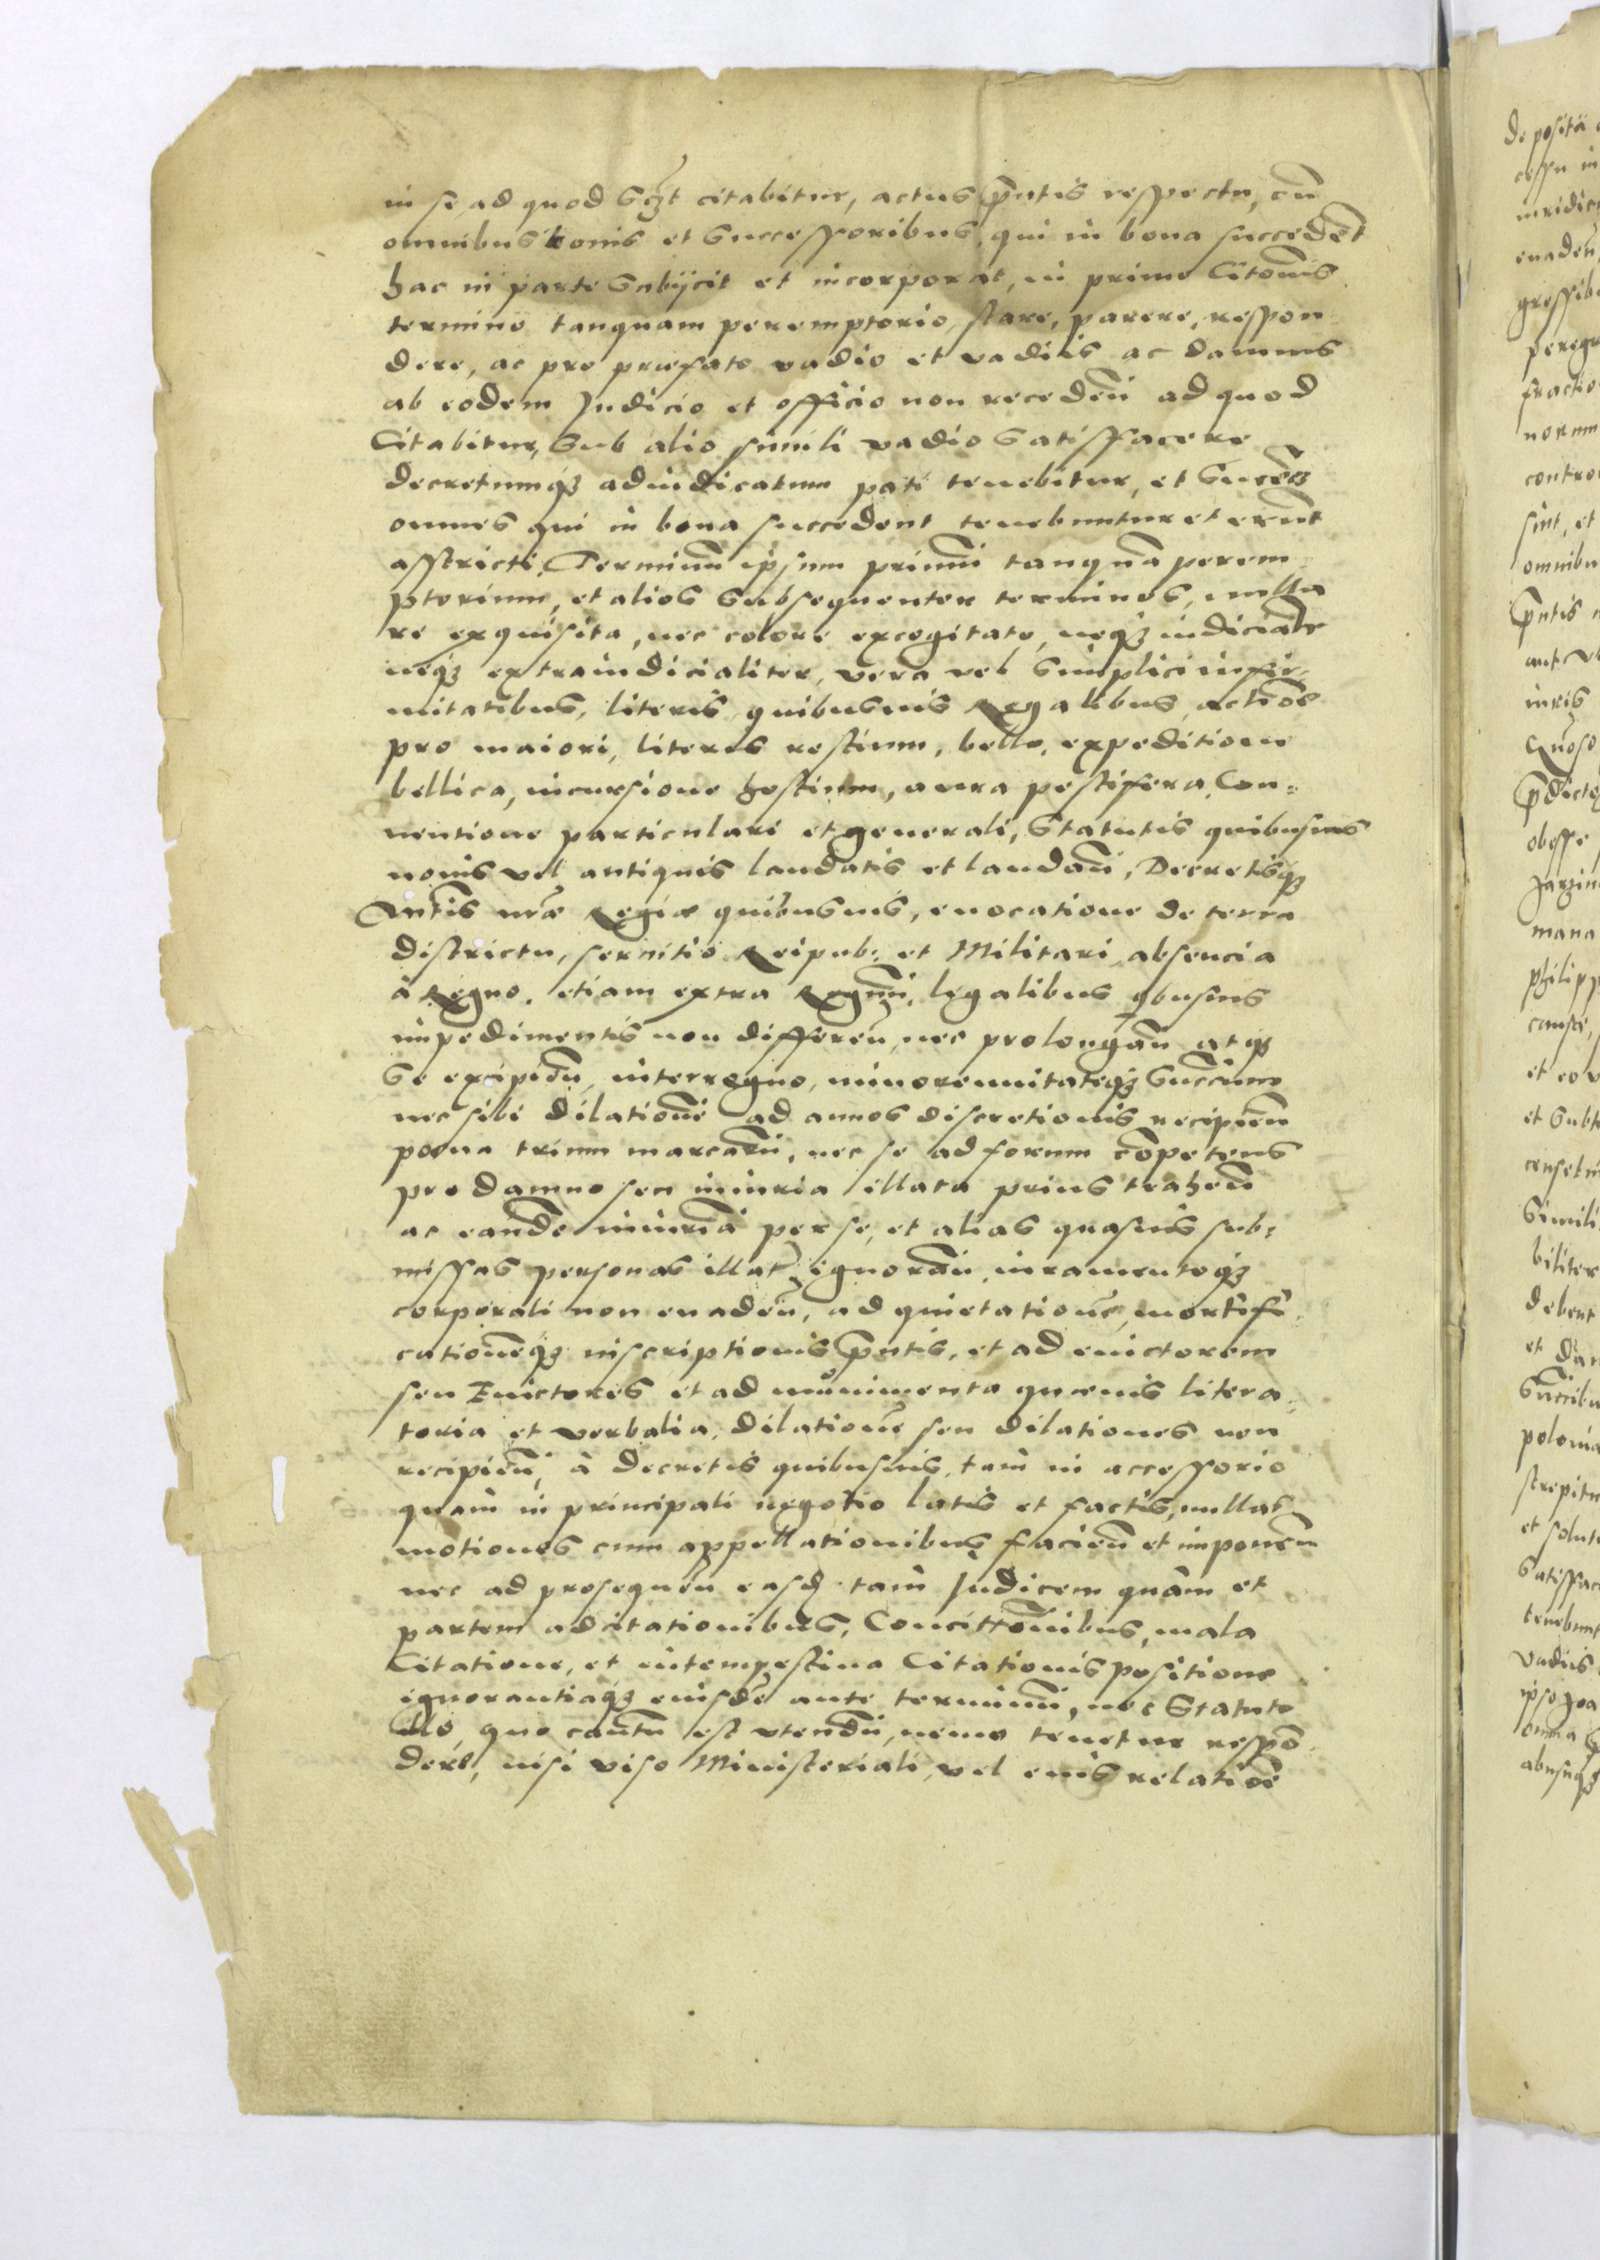 in se ad quod Sczt citabitur, actus pntis respectu, cũ
omnibus bonis et Successoribus, qui in bona succedẽt
hac in parte Subijcit et incorporat, in primo Citõnis
termino tanquam peremptorio, stare, parere, respon
dere, ac pro præfato vadio et vadiis ac damnis
ab eodem Judicio et officio non recedeñ ad quod
Citabitur, Sub alio simili vadio Satisfacere
decretumq3 adiudicatum pati tenebitur, et
omnes qui in bona succedent tenebuntur et erũt
astricti, Terminũ ipsum primũ tanquã perem
ptorium, et alios Subsequenter terminos, nulla
re exquisita, nec colore excogitato, neq3 iudicialr
neq3 extraiudicialiter, vera vel Simplici infir
mitatibus, literis quibusuis Regalibus, actiõe
pro maiori, literis restium, bello, expeditione
bellica, incursione hostium, aura pestifera, Con=
uentione particulari et generali, Statutis quibusuis
nouis vel antiquis laudatis et laudañ, Decretisq3
Mtis nræ Regiæ quibusuis, euocatione de terra
districtu, seruitio Reipub: et Militari absencia
à Regno, etiam extra Regnũ, legalibus qbusuis
impedimentis non differeñ, nec prolongañ atq3
Se excipieñ, interregno, minorennitateq3 Succum
nec sibi dilationẽ ad annos discretionis recipieñ
pœna trium marcarũ, nec se ad forum cõpetens
pro damno seu iniuria illata prius traheñ
ac eandẽ iniuriã per se, et alias quasuis sub=
missas personas illat ignorañ, iuramentoq3
corporali non euadeñ, ad quietationẽ, mortifi
cationẽq3 inscriptionis pntis, et ad euictorem
seu Euictores et ad munimenta quæuis litera=
toria et verbalia, dilationẽ seu dilationes non
recipieñ, à decretis quibusuis, tam in accessorio
quam in principali negotio latis et factis, nullas
motiones cum appellationibus facieñ et imponeñ
nec ad prosequeñ easd tam Judicem quàm et
partem adcitationibus, Concittõnibus, mala
Citatione, et intempestiua Citationis positione
ignorantiaq3 eiusdẽ ante terminũ, nec Statuto
illo, quo cautũ est vtendũ, nemo tenetur respõ
dere, nisi viso Ministeriali, vel eius relatiõe